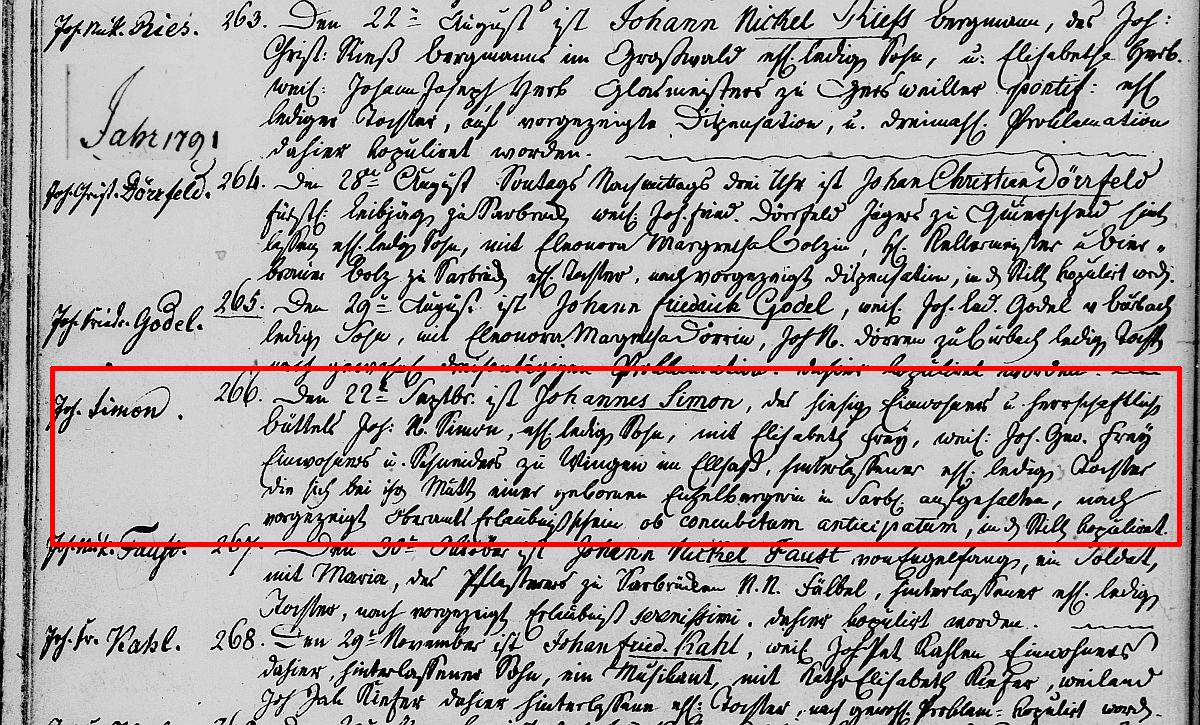 Joh. Nik. Ries. 263. Den 22ten August ist Johann Nickel Rieß bergmann, des Joh:
Christ: Rieß bergmanns im Großwald ehl. ledig Sohn, u. Elisabetha Herb.
weil: Johann Joseph Herb Glasmeisters zu Gersweiller pontif: ehl
lediger Tochter, auf vorgezeigte Dispensation, u. dreimahl. Proklamation
Jahr 1791
dahier kopuliret worden.
Joh. Christ. Dörrfeld. 264. Den 28ten August Sontags Nachmittags drei Uhr ist Johan Christian Dörrfeld
fürstl. leibjäg zu Sarbrück, weil. Joh. Fried. Dörrfeld Jägers zu Quierscheid hint
lassen ehl. ledig Sohn, mit Eleonora Margretha Bolzin, H. Kellermeister u Bier-
brauer Bolz zu Sarbrück ehl Tochter, nach vorgezeigt dispensation, in d Still kopulirt word.
Joh. Fride. Godel. 265. Den 29ten August ist Johann Friedrich Godel, weil. Joh. Lud. Godel v Burbach
ledig Sohn, mit Eleonora Margretha Dörrin, Joh N. Dörren zu Burbach ledig Tocht
Proklamation. dahier kopulirt worden.
Joh. Simon. 266. Den 22t Septbr. ist Johannes Simon, des hiesig Einwohners u. herrschaftlich
büttels Joh: N. Simon, ehl. ledig Sohn, mit Elisabeth Frey, weil: Joh. Geo. Frey
Einwohners u. Schneiders zu Wingen im Ellsaß, hinterlassener ehl. ledig Tochter
die sich bei ihr Mutt einer gebornen Enzelbergerin in Sarbr. aufgehalten, nach
vorgezeigt Oberamtl Erlaubnißschein ob concubitum anticipatum, in d Still kopuliret.
Joh. Nik. Faust. 267. Den 30ten Oktober ist Johann Nickel Faust von Engelfang, ein Soldat,
mit Maria, des Pflasterers zu Sarbrücken N.N. Fälbel, hinterlassener ehl. ledig
Tochter, nach vorgezeigt Erlaubniß serenissimi. dahier kopulirt worden.
Joh. Fr. Kahl. 268. Den 29t November ist Johan Fried. Kahl, weil Joh Pet Kahlen Einwohners
dahier, hinterlassener Sohn, ein Musikant, mit Kath Elisabeth Kiefer, weiland
Joh Jak Kiefer dahier hinterlassene ehl: Tochter, nach gewohl. Proklam- kopulirt word.